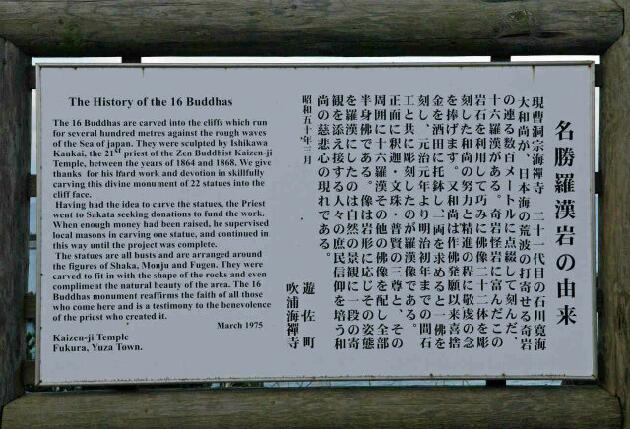 The History of the 16 Buddhas
The 16 Buddhas are carved into the cliffs which run
for several hundred metres against the rough waves
of the Sea of japan. They were sculpted by Ishikawa
Kankai, the 21st priest of the Zen Buddhist Kaizen-ji
Temple, between the years of 1864 and 1868. We give
thanks for his hard work and devotion in skillfully
carving this divine monument of 22 statues into the
cliff face.
Having had the idea to carve the statues, the Priest
went to Sakata seeking donations to fund the work.
When enough money had been raised, he supervised
local masons in carving one statue, and continued in
this way until the project was complete.
The statues are all busts and are arranged around
the figures of Shaka, Monju and Fugen. They were
carved to fit in with the shape of the rocks and even
compliment the natural beauty of the area. The 16
Buddhas monument reaffirms the faith of all those
who come here and is a testimony to the benevolence
of the priest who created it.
March 1975
Kaizen-ji Temple
Fukura, Yuza Town.
名勝羅漢岩の由来
現曹洞宗海禪寺 二十一代目の石川寛海
大和尚が、日本海の荒波の打寄せる奇岩
の連る数百メートルに点綴して刻んだ、
十六羅漢がある。奇岩怪岩に富んだこの
岩石を利用して巧みに佛像二十二体を彫
刻した和尚の努力と精進の程に敬虔の念
を捧げます。又和尚は作佛発願以来喜捨
金を酒田に托鉢し、両を求めると一佛を
刻し、元治元年より明治初年までの間石
工と共に彫刻したのが羅漢像である。
正面に釈迦・文珠・普賢の三尊と、その
周囲に十六羅漢その他の佛像を配し全部
半身佛である。像は岩形に応じその姿態
を羅漢にしたのは自然の景観に一段の寄
観を添え接する人々の庶民信仰を培う和
尚の慈悲心の現れである。
昭和五十年三月
遊佐町
吹浦海禪寺